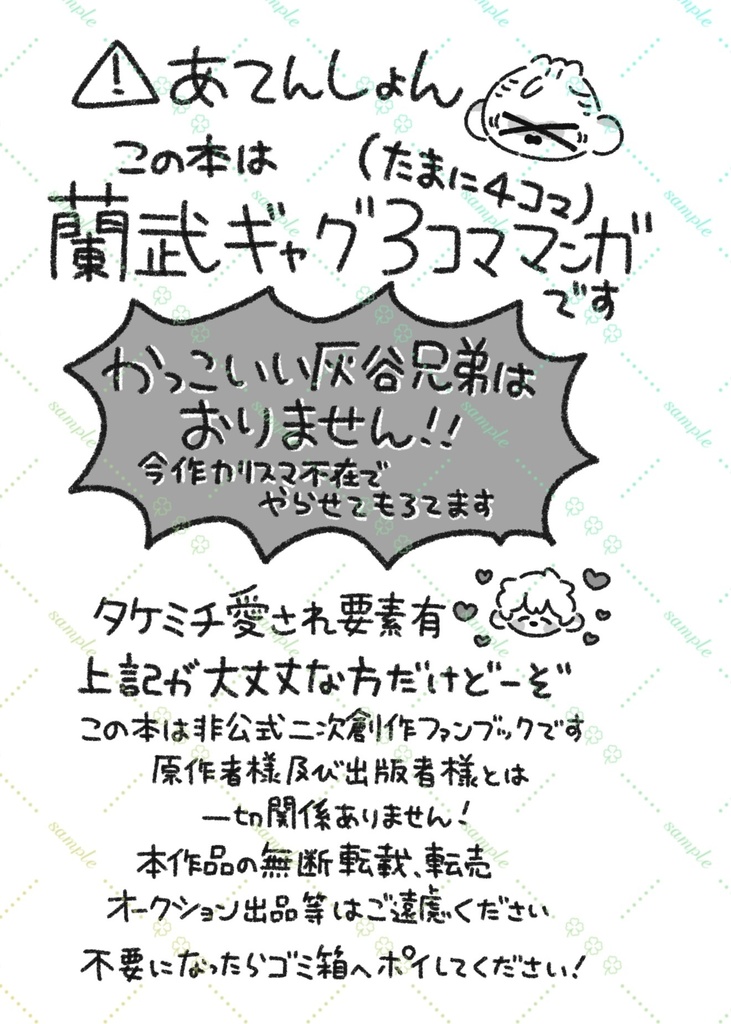 ⚠ あてんしょん
この本は
(たまに4コマ)
蘭武ギャグ3コママンガ
です
かっこいい灰谷兄弟は
おりません!!
今作カリスマ不在で
やらせてもろてます
タケミチ愛され要素有
上記が大丈丈な方だけどーぞ
この本は非公式二次創作ファンブックです
原作者様及び出版者様とは
一切関係ありません!
本作品の無断転載、転売
オークション出品等はご遠慮ください
不要になったらゴミ箱へポイしてください!
sample